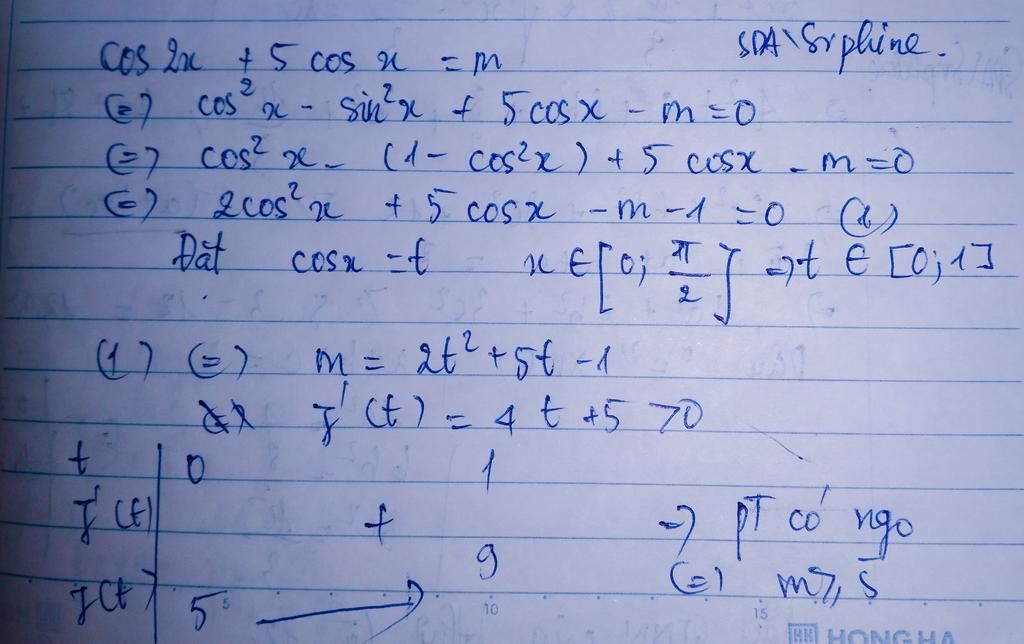 SDA\Srphine.
cos 2x + 5 cos x = m
(=) cos² x - sin² x + 5 cosx - m = 0
(=) cos² x - (1 - cos²x) + 5 cosx - m = 0
(=) 2cos² x + 5 cosx - m - 1 = 0 (1)
Đặt cosx = t x ∈ [0; π/2] => t ∈ [0; 1]
(1) (=) m = 2t² + 5t - 1
f'(t) = 4t + 5 > 0
t 0 1
f'(t) + => pT có ngo
9 (=) m ≥ 5
f(t) 5
5 10 15
HH HONG HA